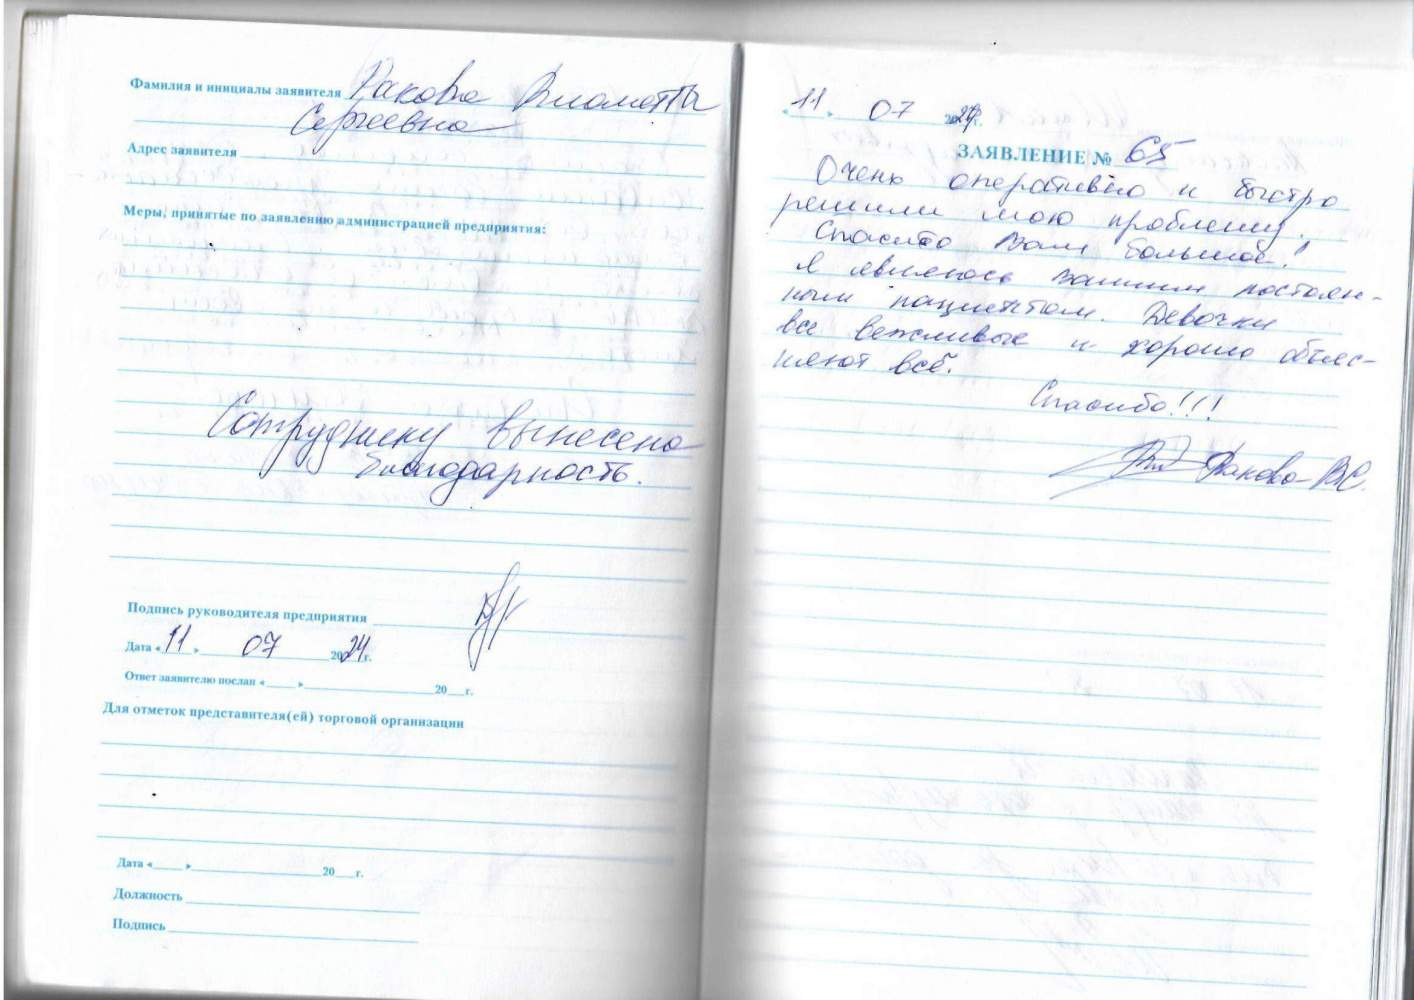 Фамилия и инициалы заявителя Ракова Виолетта
Сергеевна
Адрес заявителя
Меры, принятые по заявлению администрацией предприятия:
Сотруднику вынесена
благодарность.
Подпись руководителя предприятия
Дата « 11 » 07 2024г.
Ответ заявителю послан «___» ___ 20__г.
Для отметок представителя(ей) торговой организации
Дата «___» ___ 20__г.
Должность
Подпись
« 11 » 07 2024г.
ЗАЯВЛЕНИЕ № 65
Очень оперативно и быстро
решили мою проблему.
Спасибо Вам большое!
Я являюсь вашим постоян-
ным пациентом. Девочки
все вежливые и хорошо объяс-
няют всё.
Спасибо!!!
Ракова В.С.